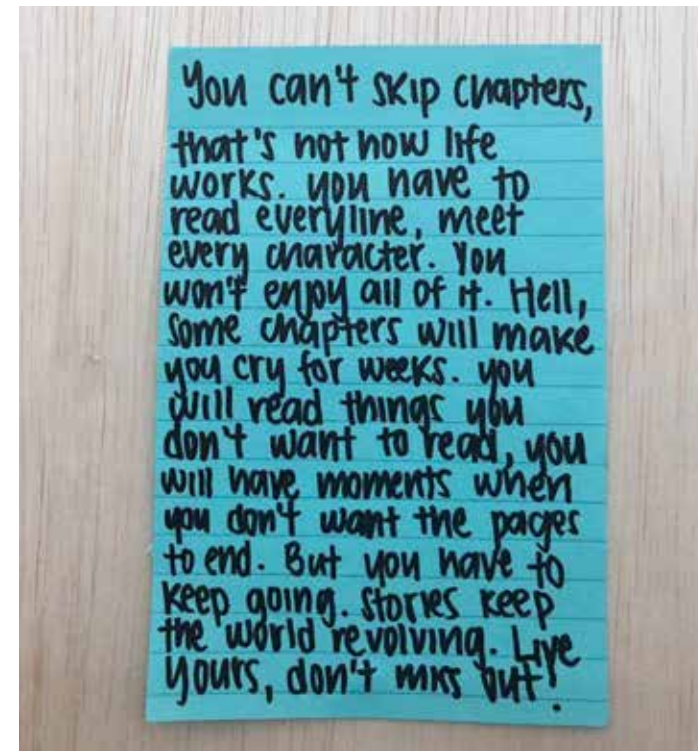 You can't skip chapters,
that's not how life
works. you have to
read everyline, meet
every character. You
won't enjoy all of it. Hell,
some chapters will make
you cry for weeks. you
will read things you
don't want to read, you
will have moments when
you don't want the pages
to end. But you have to
keep going. stories keep
the world revolving. Live
yours, don't miss out.